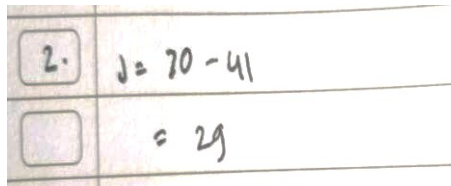 2. J = 70 - 41
= 29